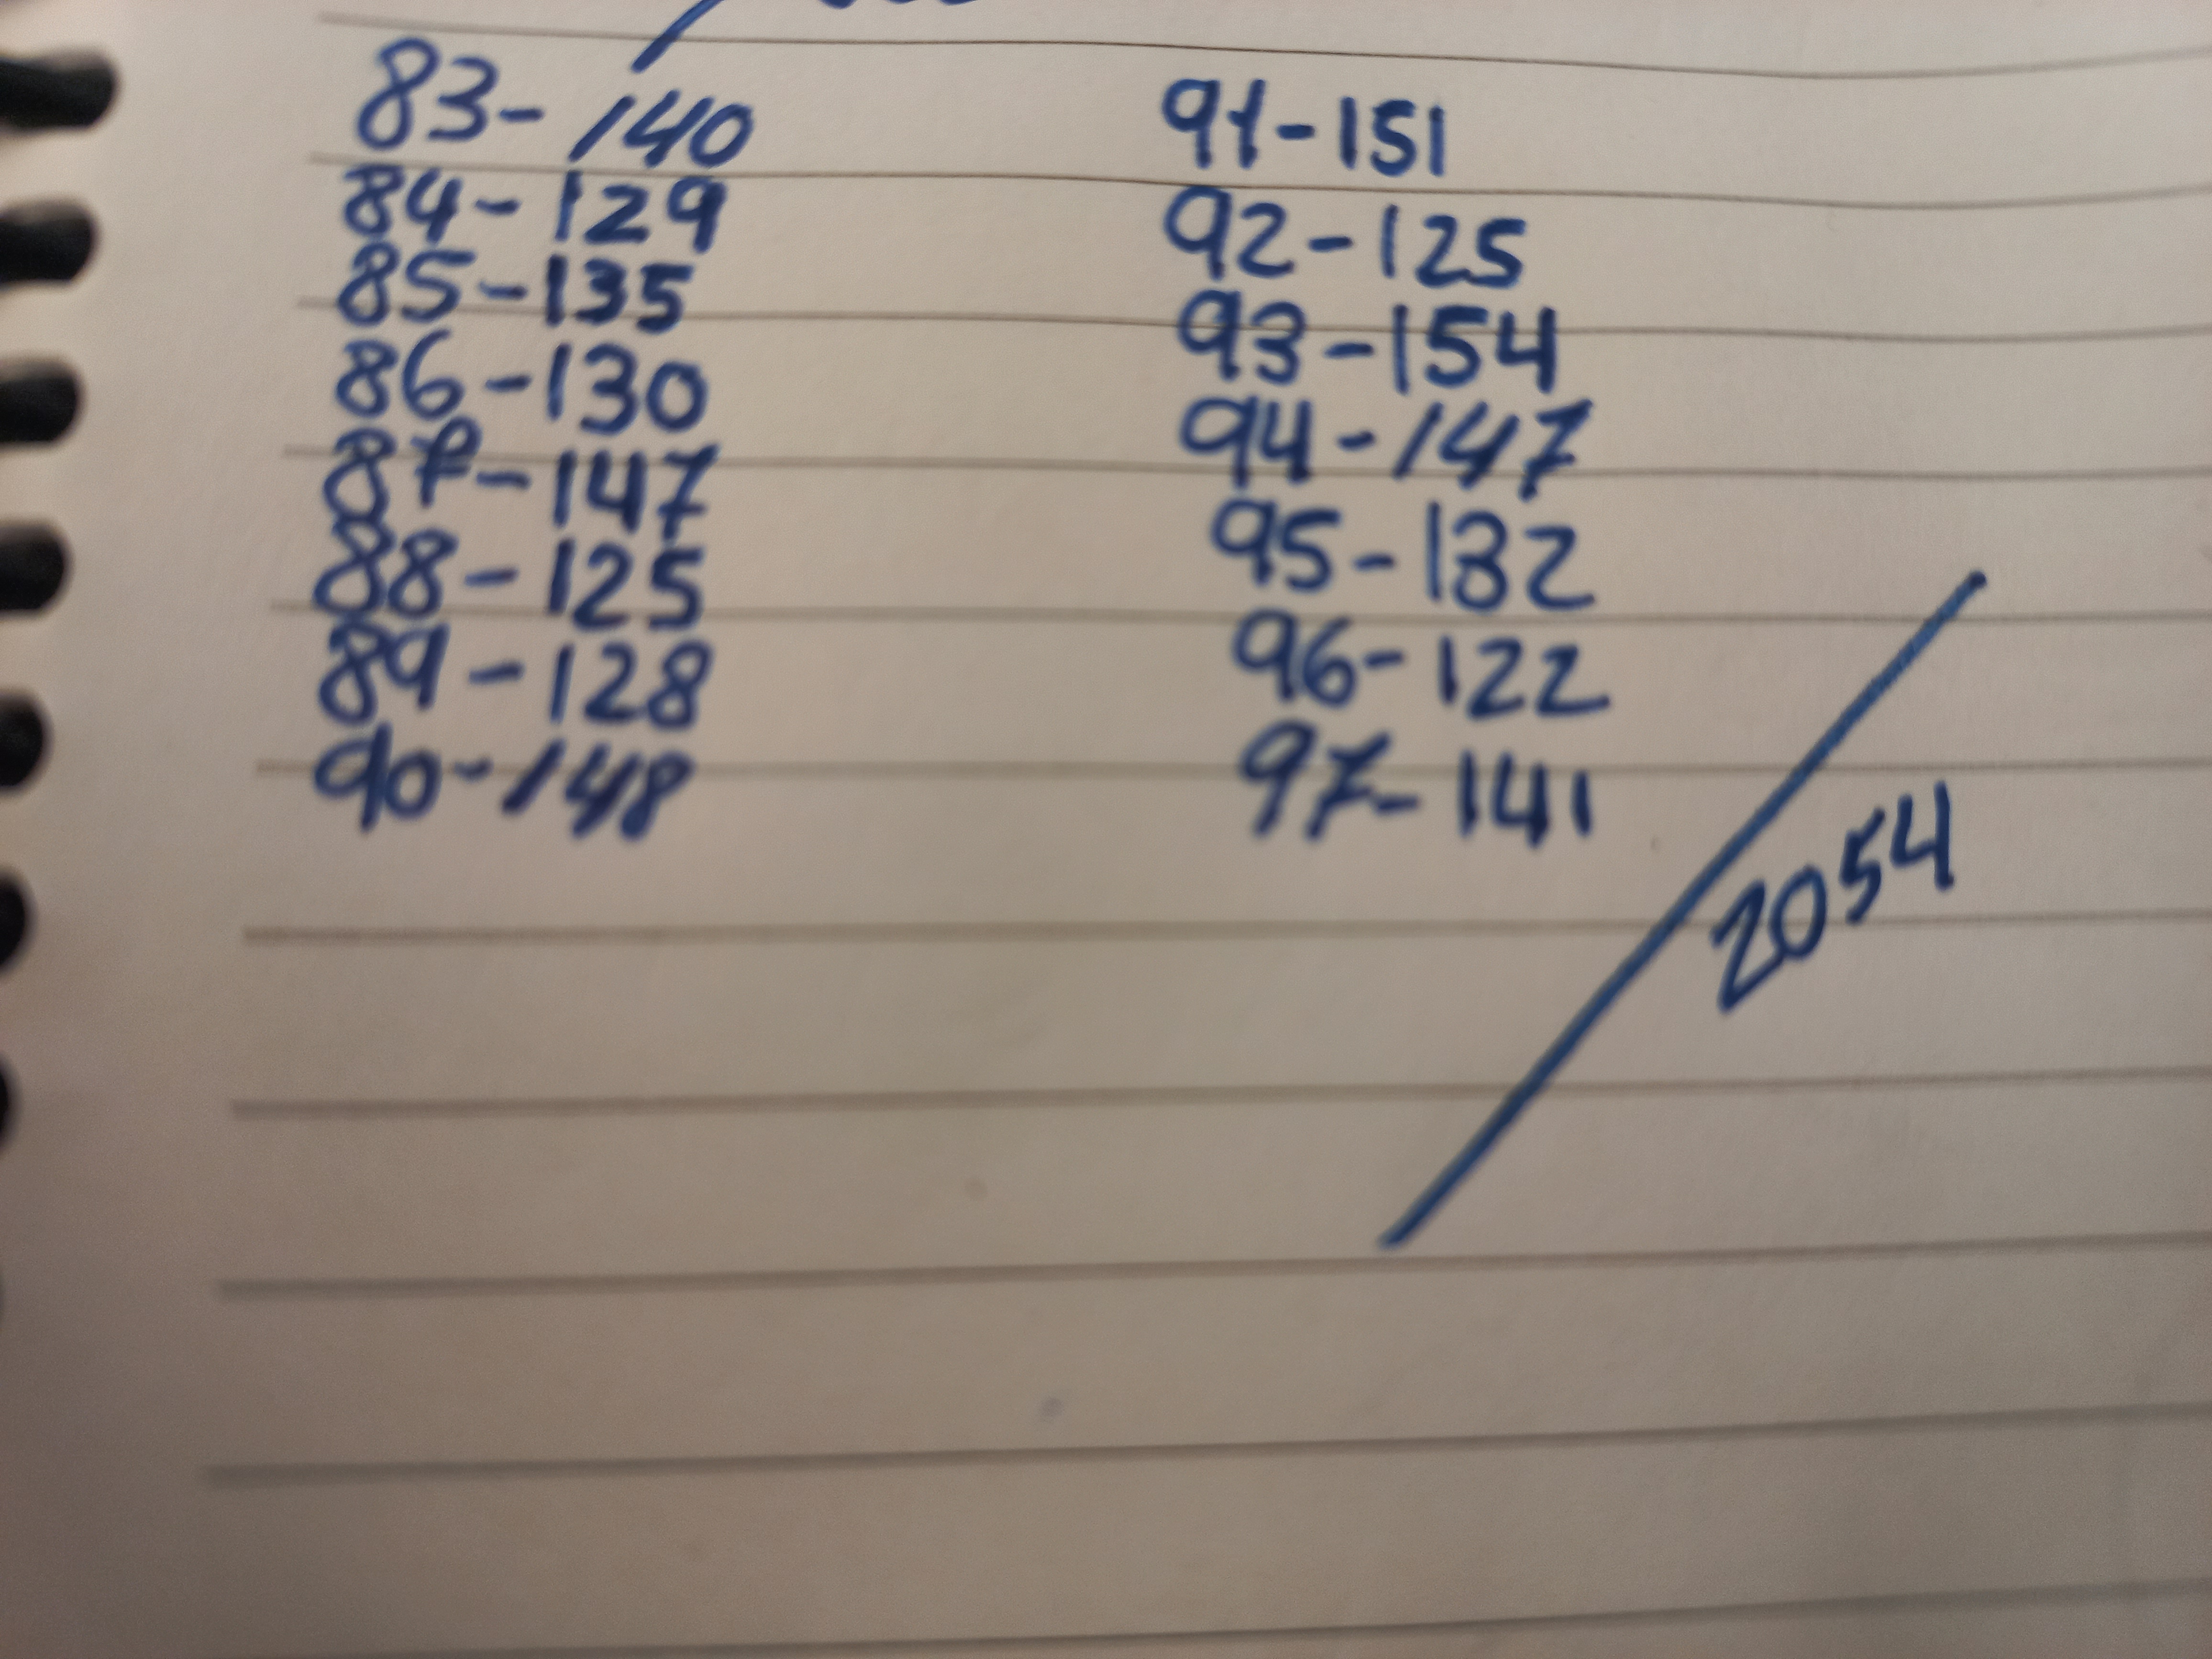 83-140
84-129
85-135
86-130
87-147
88-125
89-128
90-148
91-151
92-125
93-154
94-147
95-132
96-122
97-141
2054